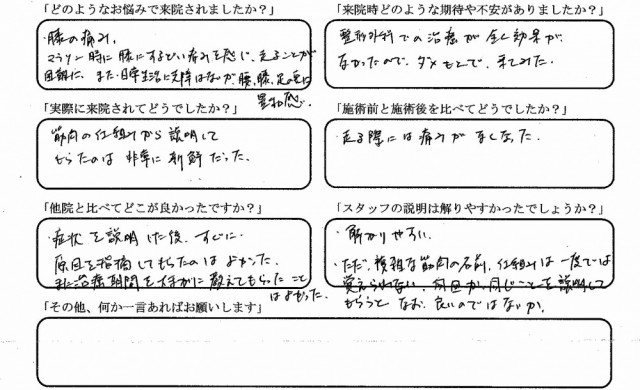 「どのようなお悩みで来院されましたか？」
・膝の痛み。
マラソン時に膝にするどい痛みを感じ、走ることが
困難に。また、日常生活に支障はないが、腰、膝、足の裏に
違和感。
「来院時どのような期待や不安がありましたか？」
整形外科での治療が全く効果が
なかったので、ダメもとで、来てみた。
「実際に来院されてどうでしたか？」
筋肉の仕組みから説明して
もらったのは非常に新鮮だった。
「施術前と施術後を比べてどうでしたか？」
・走る際には痛みがなくなった。
「他院と比べてどこが良かったですか？」
・症状を説明した後、すぐに
原因を指摘してもらったのはよかった。
また治療期間を大まかに教えてもらったこと
はよかった。
「スタッフの説明は解りやすかったでしょうか？」
・解かりやすい。
・ただ、複雑な筋肉の名前、仕組みは一度では
覚えられない。何回か同じことを説明して
もらうとなお、良いのではないか。
「その他、何か一言あればお願いします」